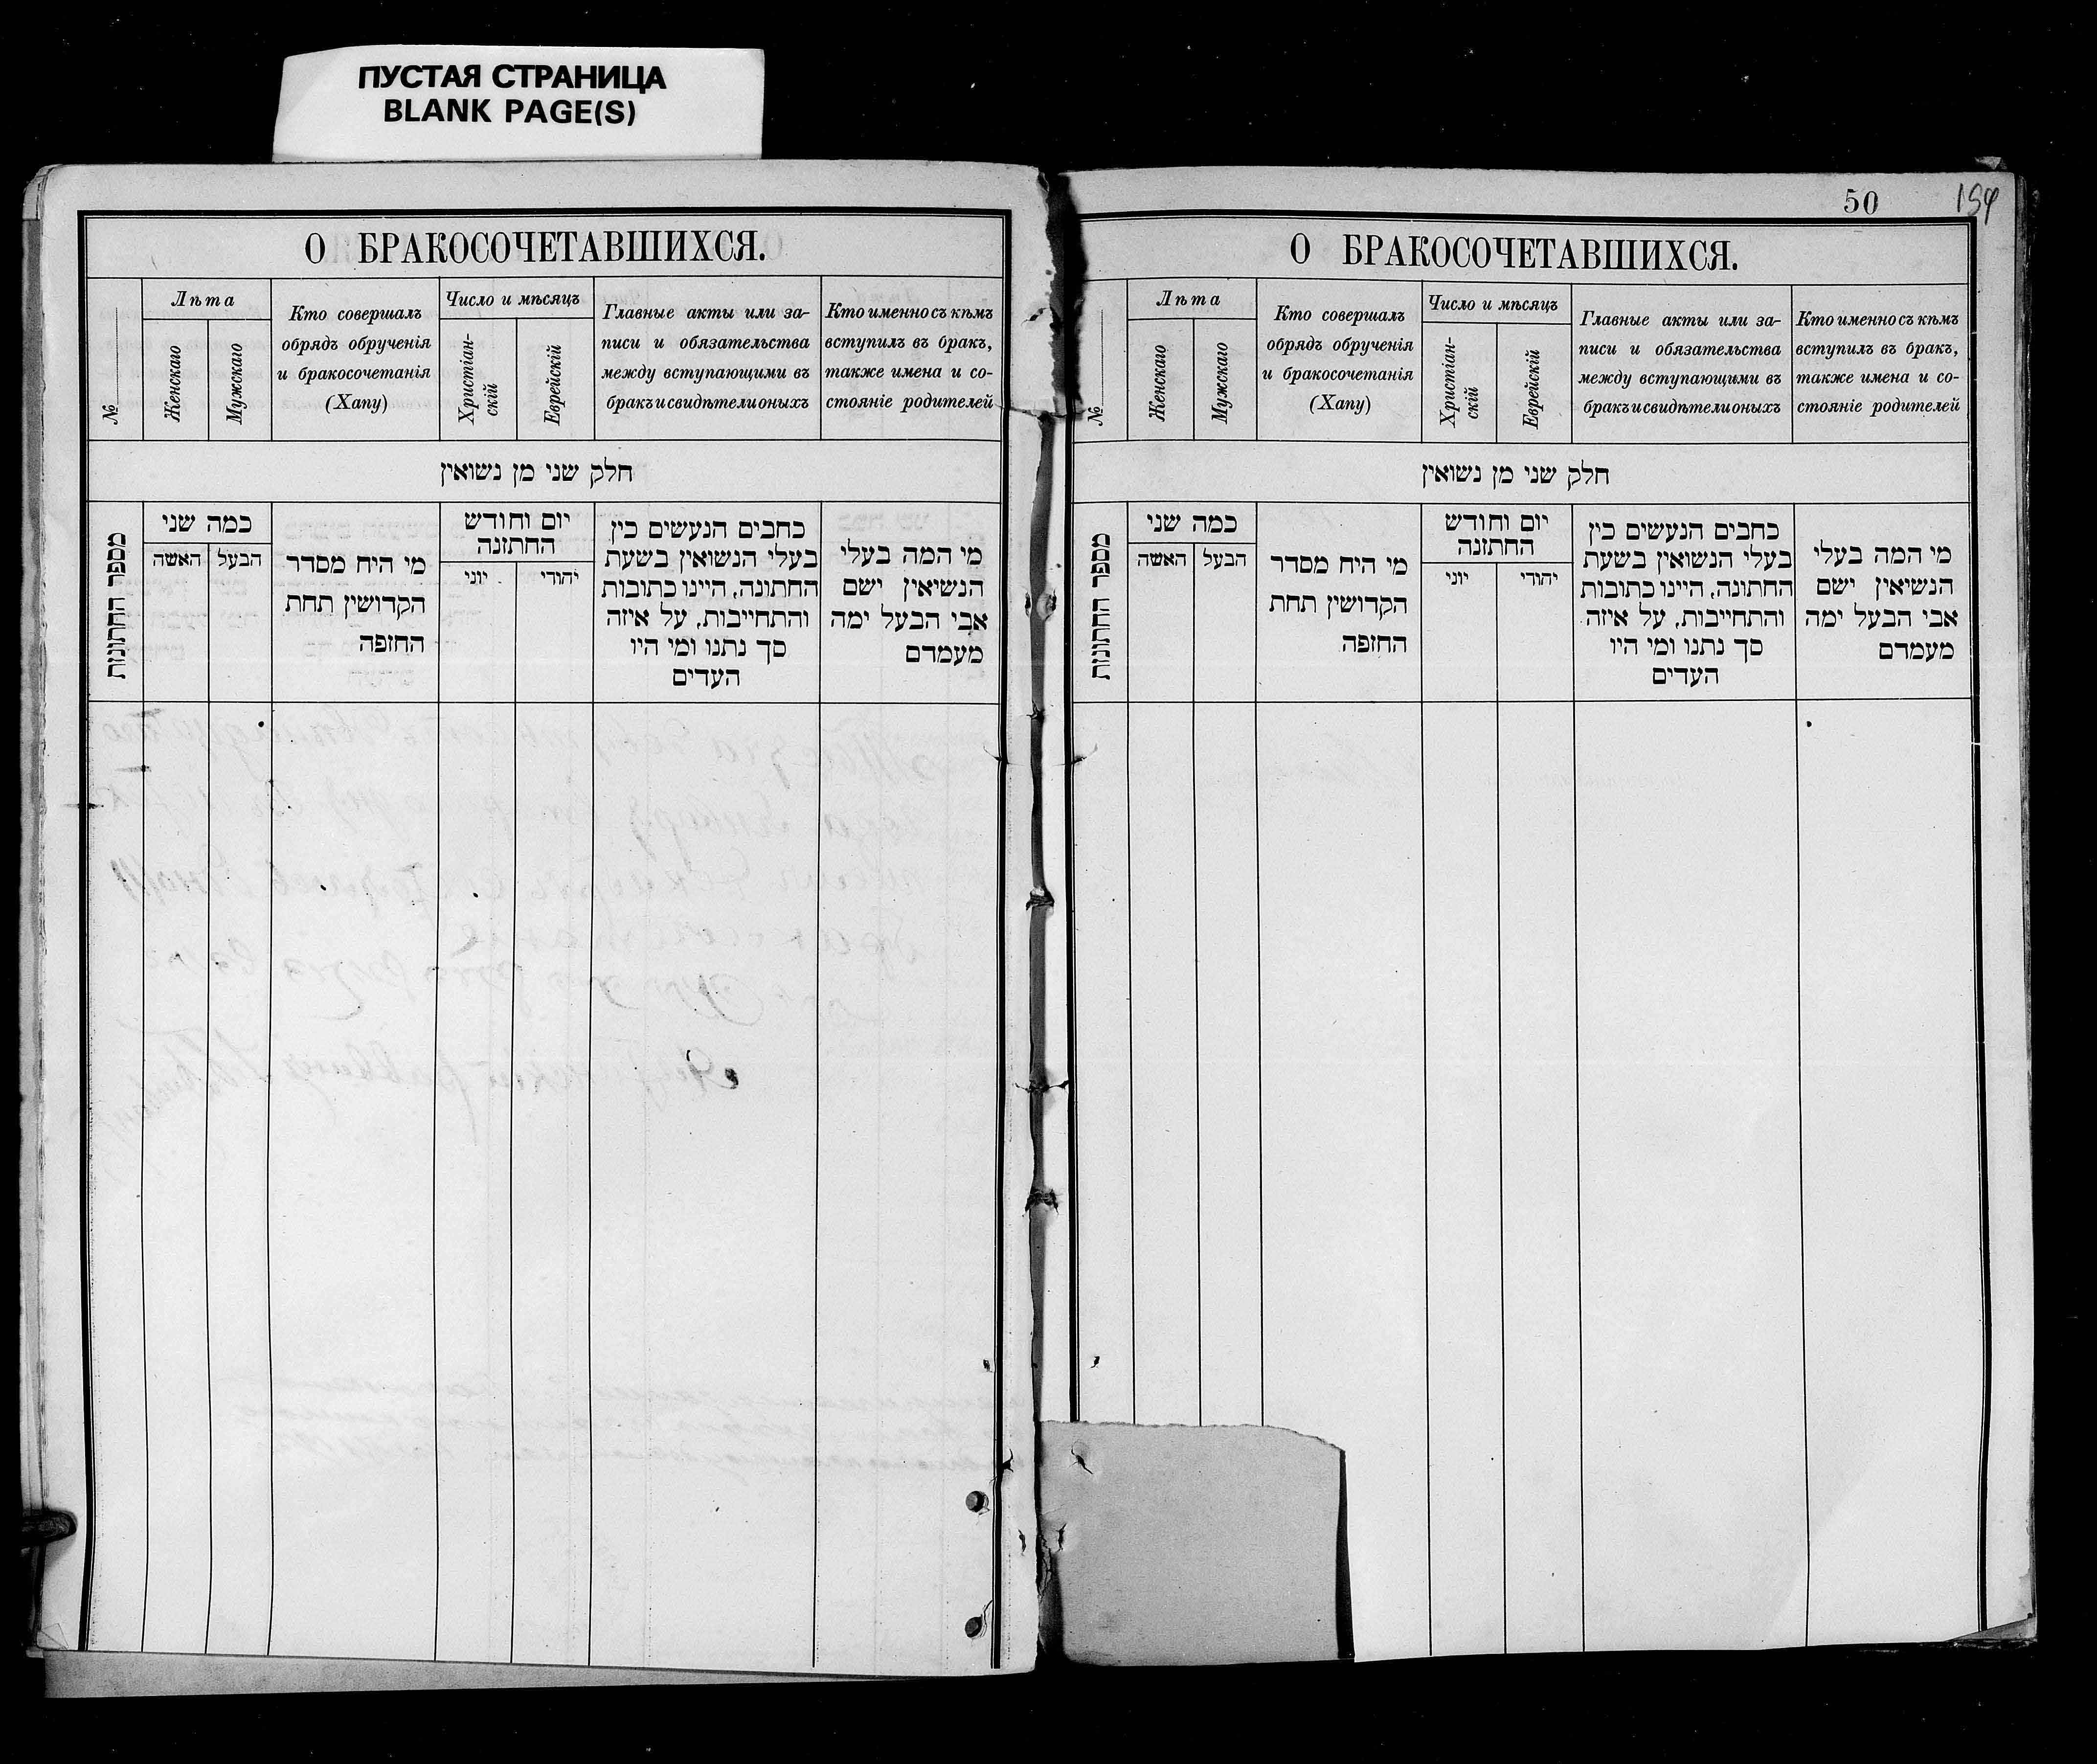 ПУСТАЯ СТРАНИЦА
BLANK PAGE(S)
О БРАКОСОЧЕТАВШИХСЯ.
№
Лѣта
Женскаго
Мужскаго
Кто совершалъ
обрядъ обрученія
и бракосочетанія
(Хапу)
Число и мѣсяцъ
Христіан-
скій
Еврейскій
Главные акты или за-
писи и обязательства
между вступающими въ
бракъ и свидѣтели оныхъ
Кто именно съ кѣмъ
вступилъ въ бракъ,
также имена и со-
стояніе родителей
חלק שני מן נשואין
מספר החתונות
כמה שני
האשה
הבעל
מי היח מסדר
הקדושין תחת
החופה
יום וחודש
החתונה
יוני
יהודי
כחבים הנעשים בין
בעלי הנשואין בשעת
החתונה, היינו כתובות
והתחייבות, על איזה
סך נתנו ומי היו
העדים
מי המה בעלי
הנשיאין ישם
אבי הבעל ימה
מעמדם
50
О БРАКОСОЧЕТАВШИХСЯ.
№
Лѣта
Женскаго
Мужскаго
Кто совершалъ
обрядъ обрученія
и бракосочетанія
(Хапу)
Число и мѣсяцъ
Христіан-
скій
Еврейскій
Главные акты или за-
писи и обязательства
между вступающими въ
бракъ и свидѣтели оныхъ
Кто именно съ кѣмъ
вступилъ въ бракъ,
также имена и со-
стояніе родителей
חלק שני מן נשואין
מספר החתונות
כמה שני
האשה
הבעל
מי היח מסדר
הקדושין תחת
החופה
יום וחודש
החתונה
יוני
יהודי
כחבים הנעשים בין
בעלי הנשואין בשעת
החתונה, היינו כתובות
והתחייבות, על איזה
סך נתנו ומי היו
העדים
מי המה בעלי
הנשיאין ישם
אבי הבעל ימה
מעמדם